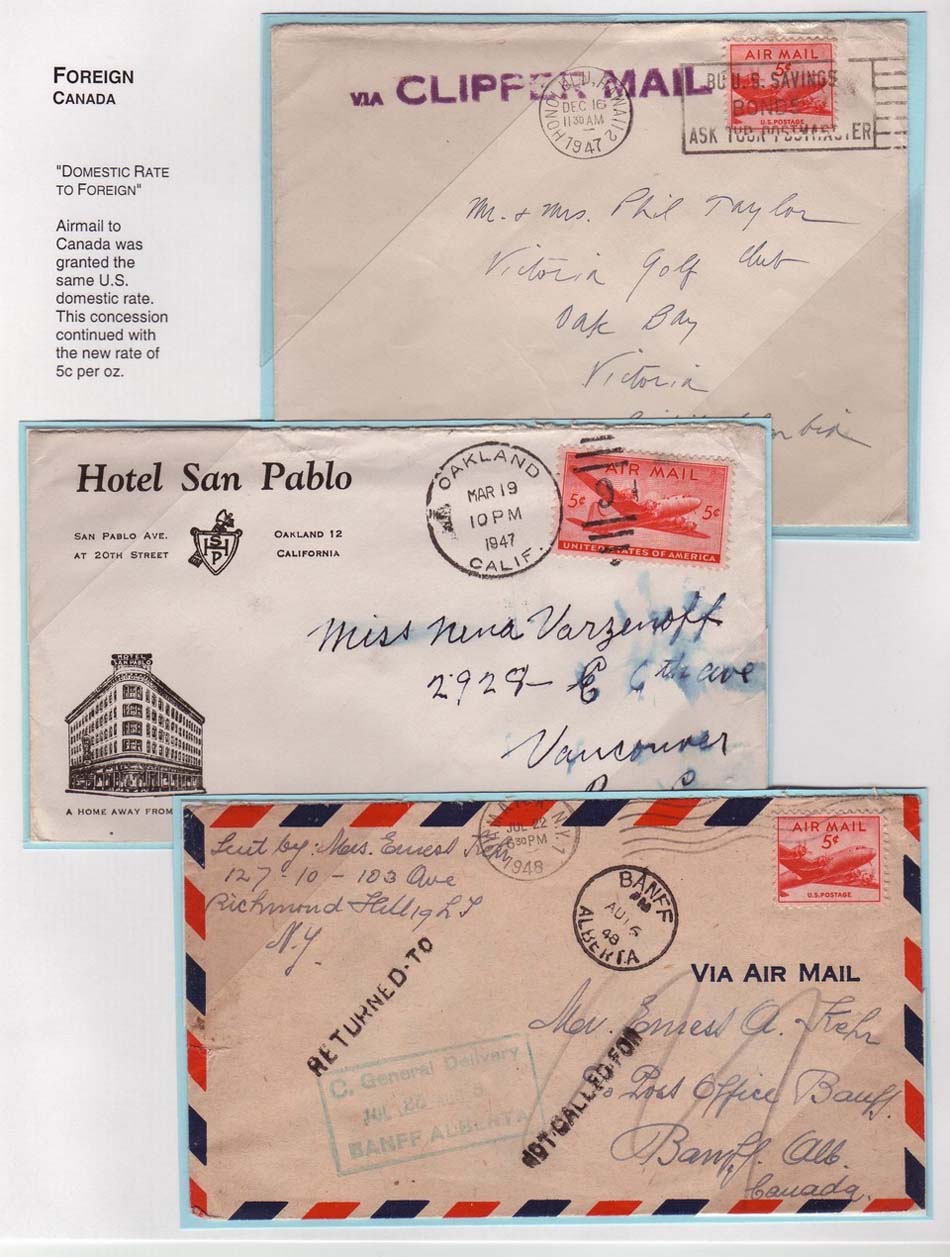 FOREIGN
CANADA
"DOMESTIC RATE
TO FOREIGN"
Airmail to
Canada was
granted the
same U.S.
domestic rate.
This concession
continued with
the new rate of
5c per oz.
VIA CLIPPER MAIL
HONOLULU, HAWAII 2
DEC 16
11 30 AM
1947
AIR MAIL
5¢
U.S. POSTAGE
BUY U.S. SAVINGS
BONDS
ASK YOUR POSTMASTER
Mr. & Mrs. Phil Taylor
Victoria Golf Club
Oak Bay
Victoria
Hotel San Pablo
SAN PABLO AVE.
AT 20TH STREET
HSP
OAKLAND 12
CALIFORNIA
HOTEL
SAN PABLO
A HOME AWAY FROM
OAKLAND
MAR 19
10 PM
1947
CALIF.
AIR MAIL
5¢ 5¢
UNITED STATES OF AMERICA
Miss Nena Varzenoff
2928 - E 6th ave
Vancouver
Sent by: Mrs. Ernest Kehr
127-10-103 Ave
Richmond Hill 19 L I
N.Y.
N.Y. 1
JUL 22
6 30 PM
1948
BANFF
PM
AU 6
48
ALBERTA
AIR MAIL
5¢
U.S. POSTAGE
VIA AIR MAIL
RETURNED-TO
NOT CALLED FOR
C. General Delivery
JUL 26
BANFF ALBERTA
Mr. Ernest A. Kehr
c/o Post Office Banff
Banff, Alb.
Canada.